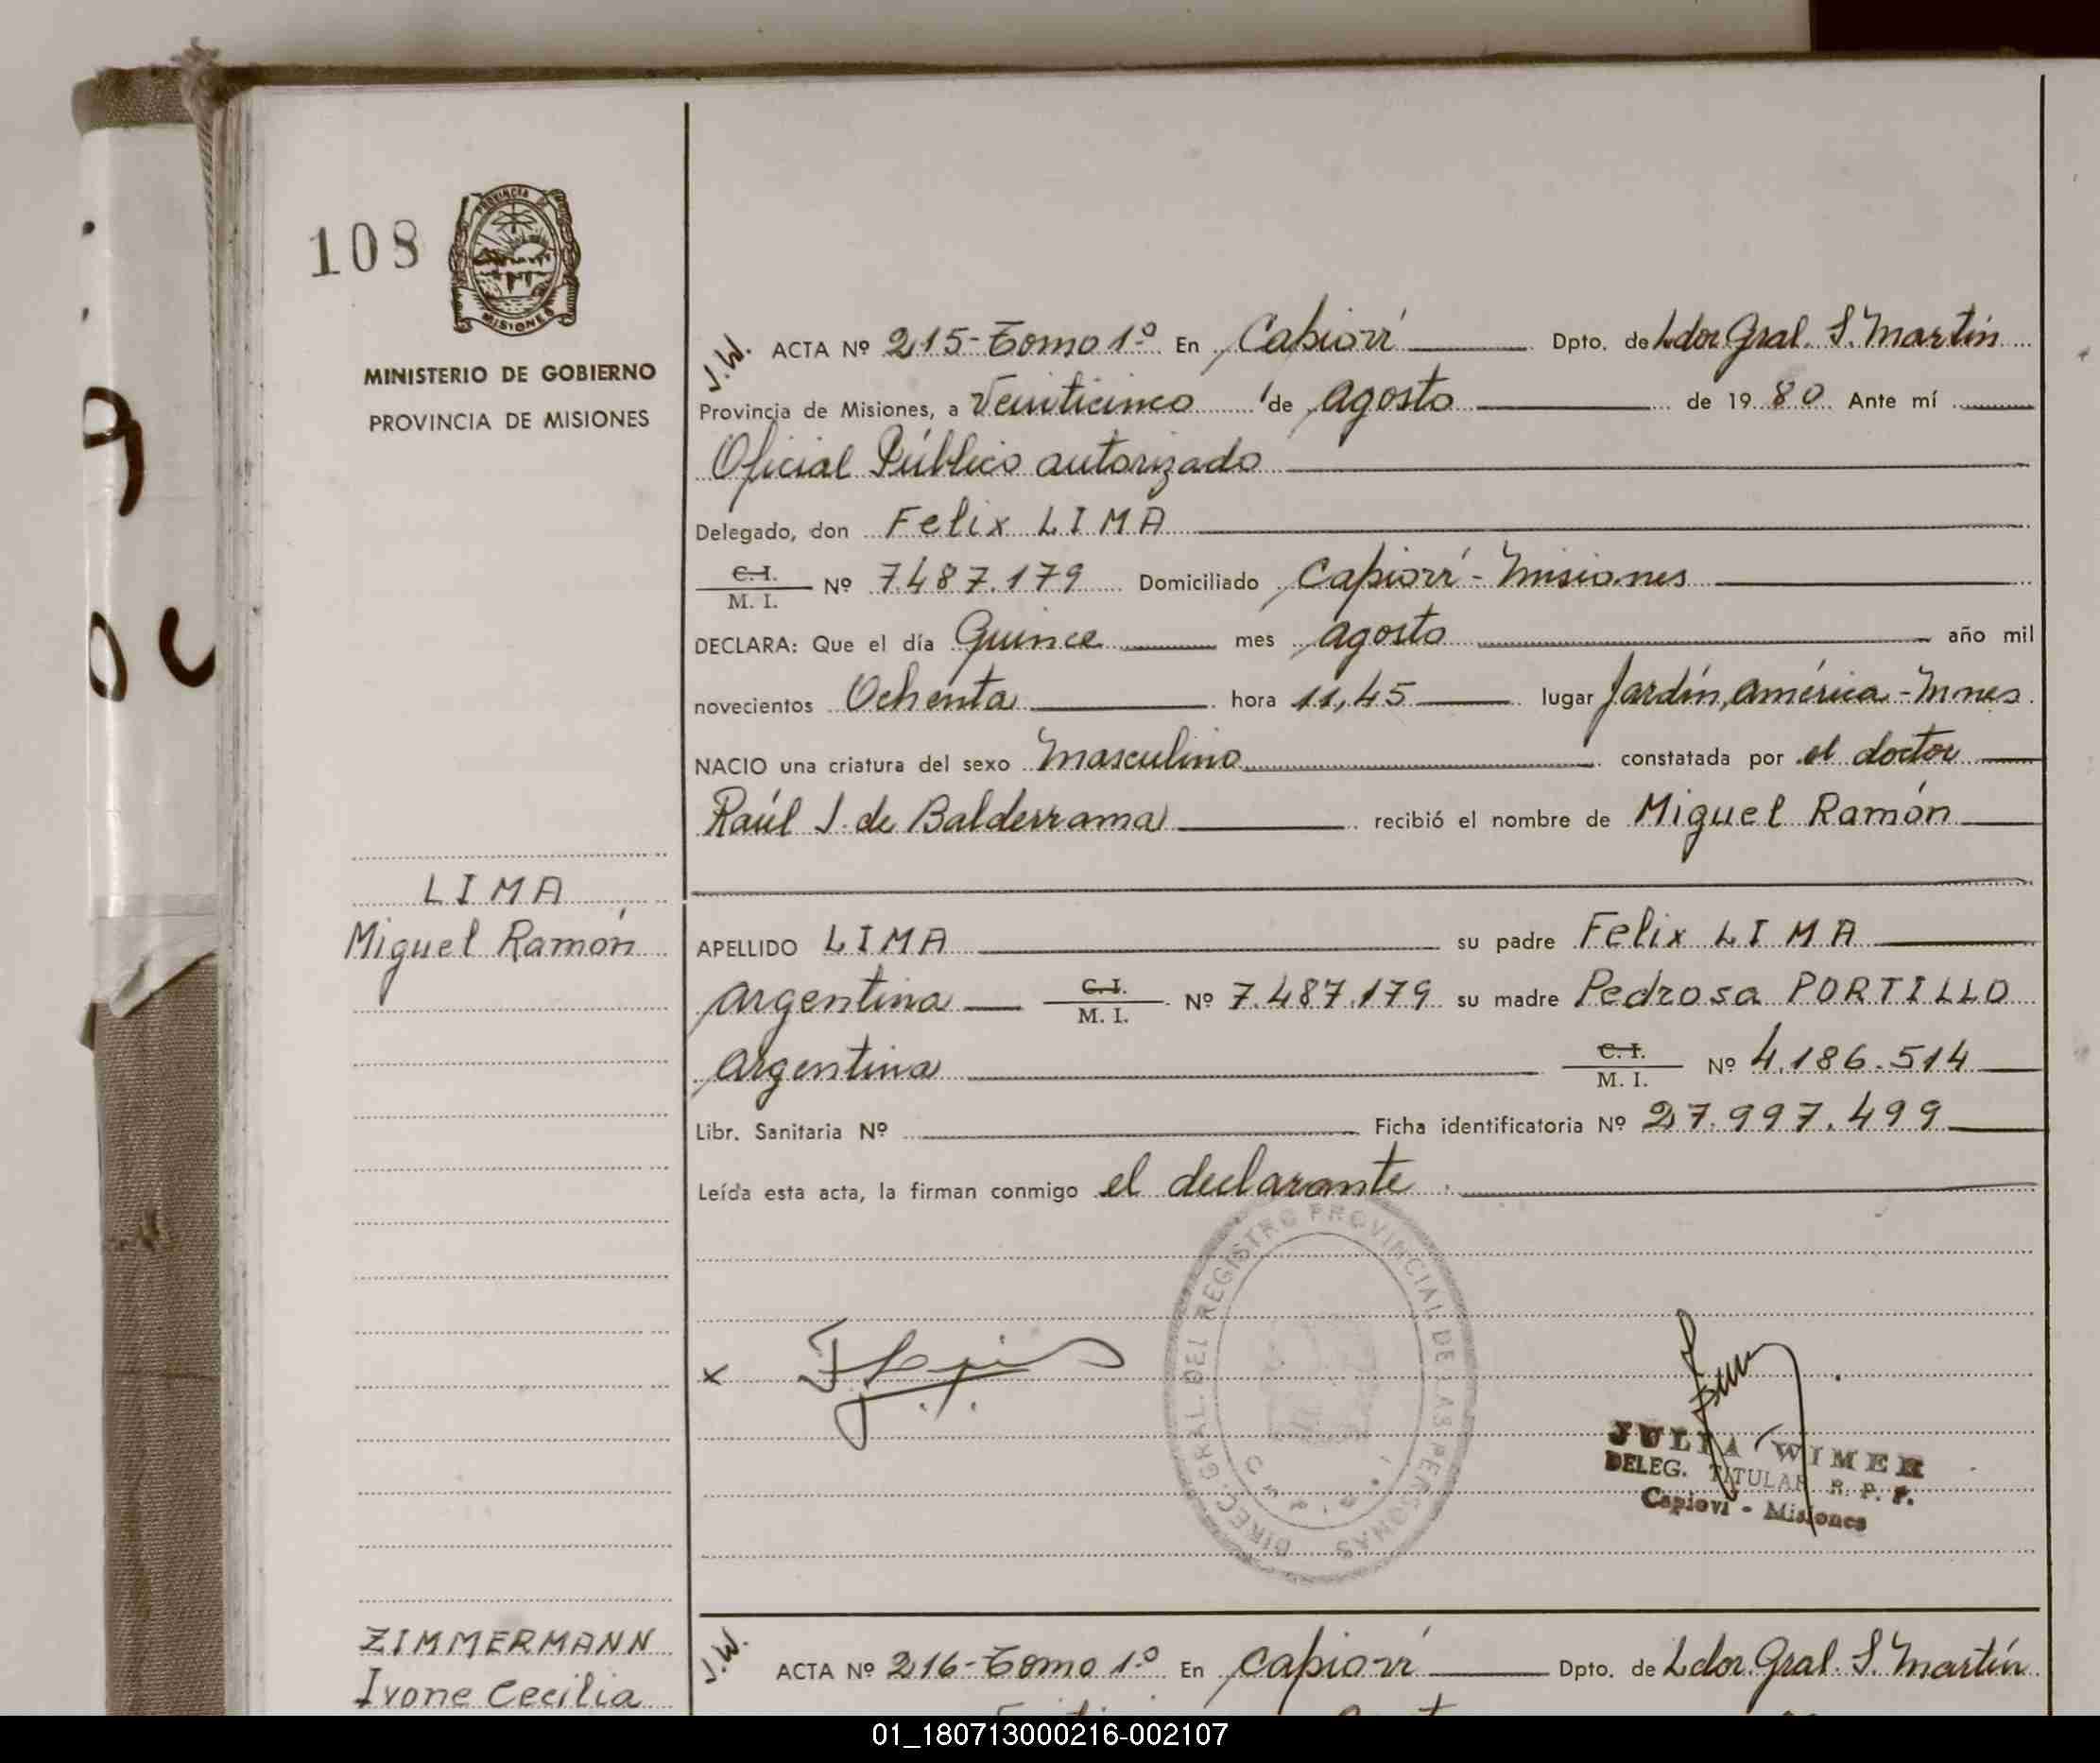 108
PROVINCIA
MISIONES
MINISTERIO DE GOBIERNO
PROVINCIA DE MISIONES
J.W. ACTA Nº 215-Tomo 1º En Capioví Dpto. de Ldor Gral. S. Martín
Provincia de Misiones, a Veinticinco de agosto de 1980 Ante mí
Oficial Público autorizado
Delegado, don Felix LIMA
C.I. M. I. Nº 7.487.179 Domiciliado Capioví - Misiones
DECLARA: Que el día Quince mes agosto año mil
novecientos Ochenta hora 11,45 lugar Jardín, américa - Mnes
NACIO una criatura del sexo Masculino constatada por el doctor
Raúl J. de Balderrama recibió el nombre de Miguel Ramón
LIMA
Miguel Ramón
APELLIDO LIMA su padre Felix LIMA
argentina C.I. M. I. Nº 7.487.179 su madre Pedrosa PORTILLO
argentina C.I. M. I. Nº 4.186.514
Libr. Sanitaria Nº Ficha identificatoria Nº 27.997.499
Leída esta acta, la firman conmigo el declarante.
DIREC. GRAL. DEL REGISTRO PROVINCIAL DE LAS PERSONAS
x
JULIA WIMER
DELEG. TITULAR R. P. P.
Capioví - Misiones
ZIMMERMANN
Ivone Cecilia
J.W. ACTA Nº 216-Tomo 1º En Capioví Dpto. de Ldor. Gral. S. Martín
01_180713000216-002107